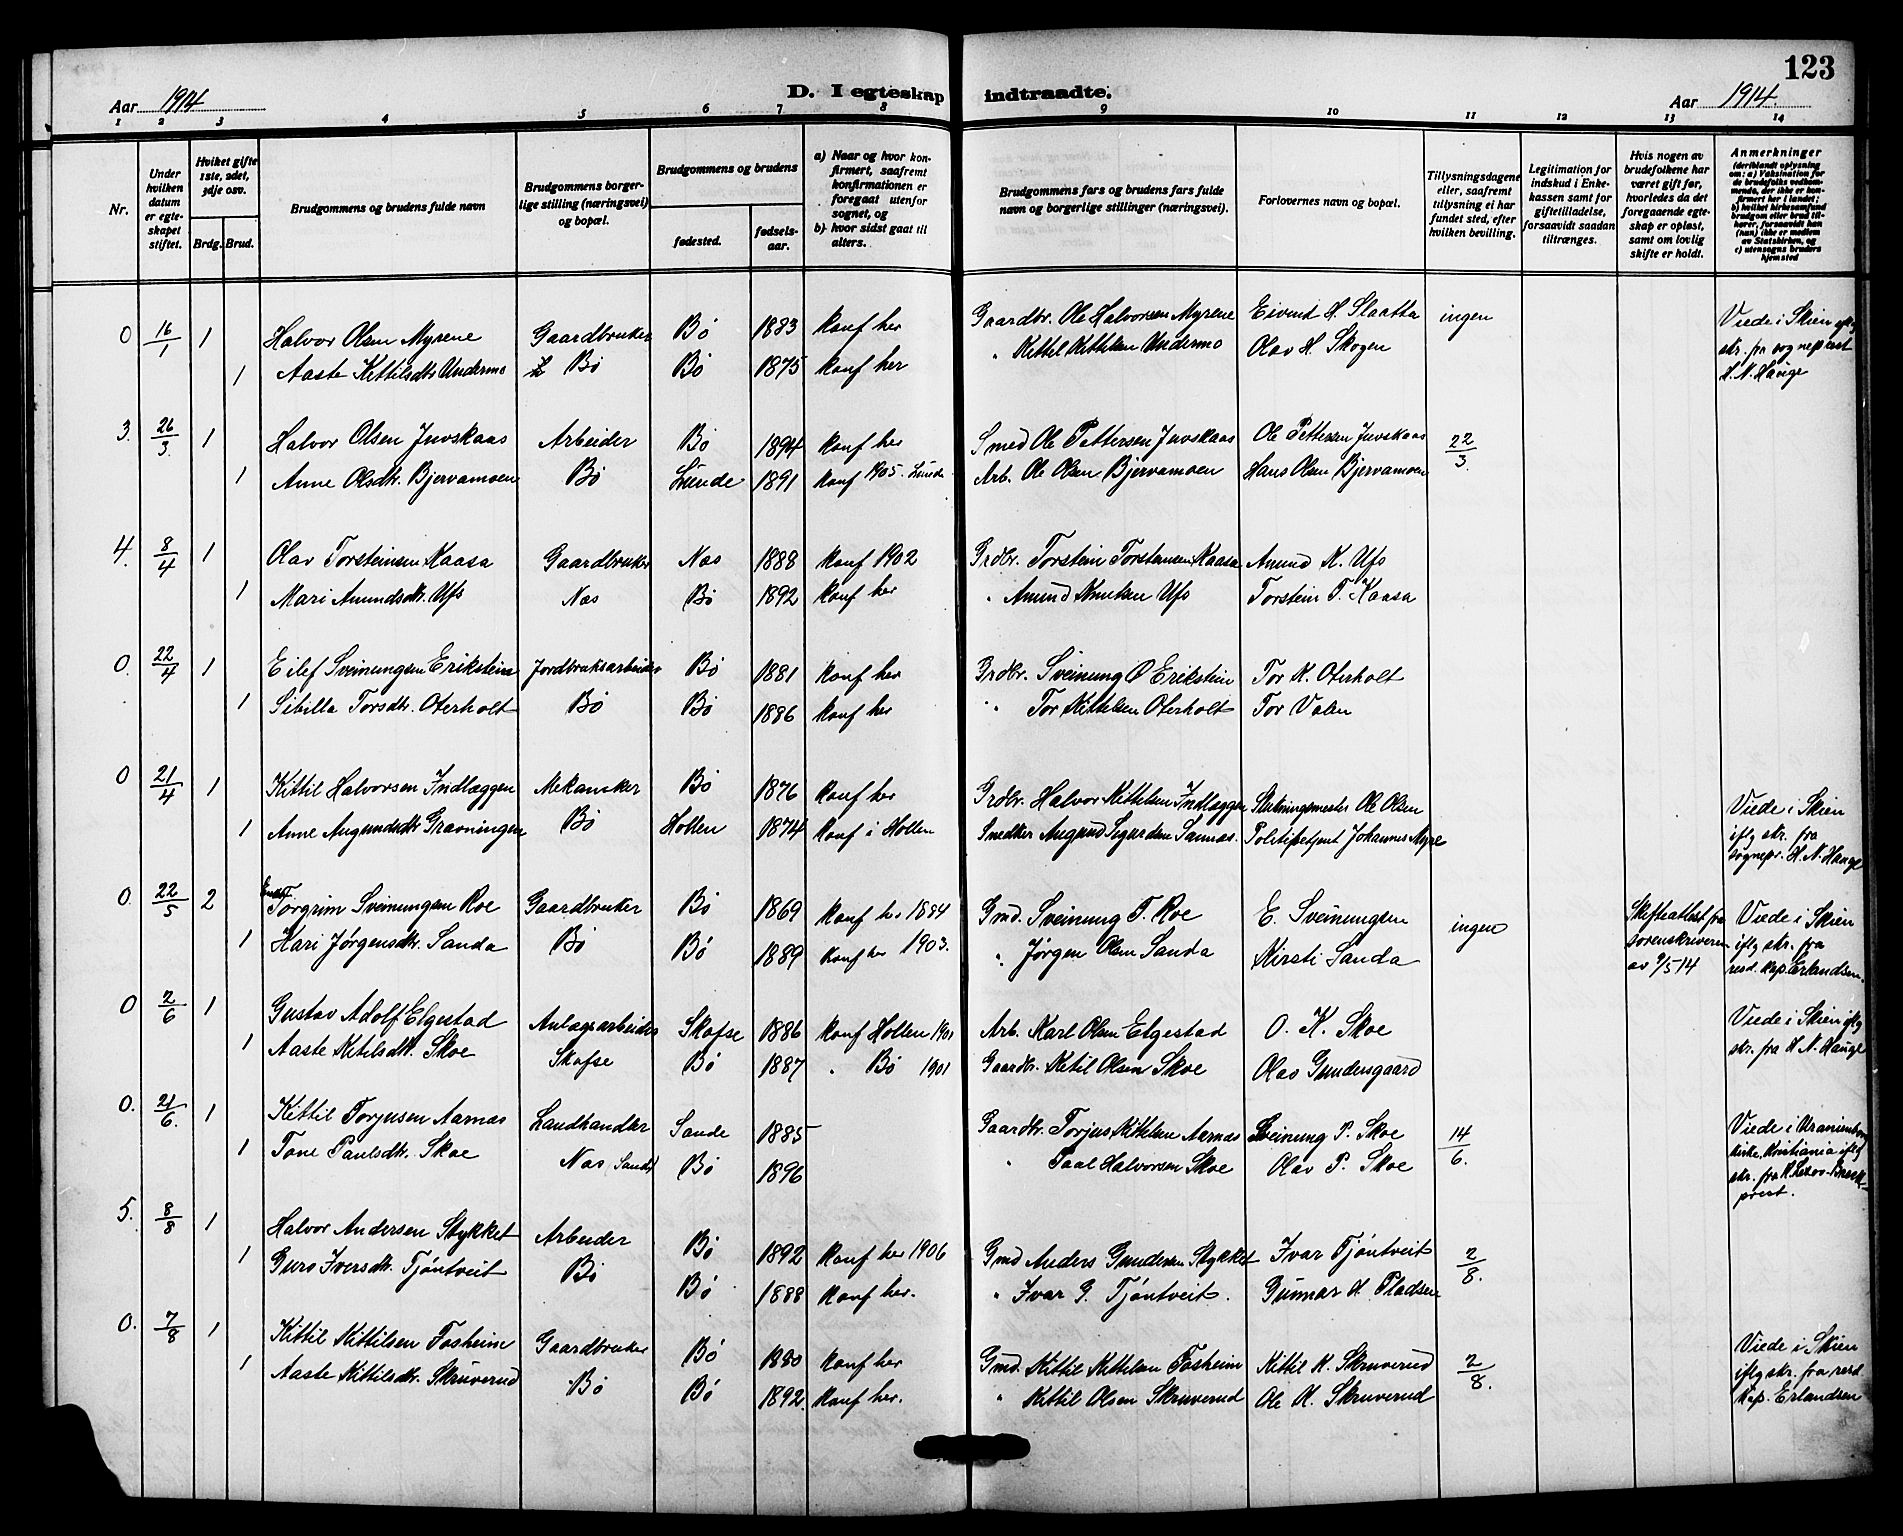 123
Aar 1914
D. I egteskap indtraadte.
Aar 1914.
1 2 3 4 5 6 7 8 9 10 11 12 13 14
Nr.
Under hvilken datum er egteskapet stiftet.
Hvilket gifte 1ste, 2det, 3dje osv.
Brdg. Brud.
Brudgommens og brudens fulde navn
Brudgommens borgerlige stilling (næringsvei) og bopæl.
Brudgommens og brudens
fødested.
fødselsaar.
a) Naar og hvor konfirmert, saafremt konfirmationen er foregaat utenfor sognet, og
b) hvor sidst gaat til alters.
Brudgommens fars og brudens fars fulde navn og borgerlige stillinger (næringsvei).
Forlovernes navn og bopæl.
Tillysningsdagene eller, saafremt tillysning ei har fundet sted, efter hvilken bevilling.
Legitimation for indskud i Enkekassen samt for giftetilladelse, forsaavidt saadan tiltrænges.
Hvis nogen av brudefolkene har været gift før, hvorledes da det foregaaende egteskap er opløst, samt om lovlig skifte er holdt.
Anmerkninger (deriblandt oplysning om: a) Vaksination for de brudefolks vedkommende, der ikke er konfirmert her i landet; b) hvilket kirkesamfund brudgom eller brud tilhører, forsaavidt han (hun) ikke er medlem av Statskirken, og c) utensogns bruders hjemsted
0 16/1 1 Halvor Olsen Myrene Gaardbruker Bø 1883 konf her Gaardbr. Ole Halvorsen Myrene Eivind H. Slaatta ingen Viede i Skien iflg str. fra sogneprest H. N. Hauge
1 Aaste Kittilsdtr Undermo Bø Bø 1875 konf her " Kittil Kittilsen Undermo Olav H. Skogen
3. 26/3 1 Halvor Olsen Juvskaas Arbeider Bø 1894 konf her Smed Ole Pettersen Juvskaas Ole Pettersen Juvskaas 22/3.
1 Anne Olsdtr. Bjervamoen Bø Lunde 1891 konf 1905. Lunde Arb. Ole Olsen Bjervamoen Hans Olsen Bjervamoen
4. 8/4 1 Olav Torsteinsen Kaasa Gaardbruker Nes 1888 konf 1902 Grdbr. Torstein Torstensen Kaasa Amund K. Ufs
1 Mari Amundsdtr. Ufs Nes Bø 1892 konf her " Amund Knutsen Ufs Torstein T. Kaasa
0. 22/4 1 Eilef Sveinungsen Erikstein Jordbruksarbeider Bø 1881 konf her Grdbr. Sveinung Ø Erikstein Tor K. Oterholt
1 Sibilla Torsdtr. Oterholt Bø Bø 1886 konf her " Tor Kittelsen Oterholt Tor Valen
0 21/4 1 Kittil Halvorsen Indlæggen Mekaniker Bø 1876 konf her Grdbr. Halvor Kittelsen Indlæggen Ole Olsen Viede i Skien iflg str. fra sognepr. H. N. Hauge
1 Anne Augundsdtr Gravningen Bø Hollen 1874 konf i Hollen Snedker Augund Sigurdsen Politibetjent Johannes Myre
0. 22/5 2 Enkem. Torgrim Sveinungsen Roe Gaardbruker Bø 1869 konf her 1884 Gmd. Sveinung T. Roe E. Sveinungsen ingen Skifteattest fra sorenskriveren av 9/5 14 Viede i Skien iflg str. fra resd. kap Erlandsen.
1 Kari Jørgensdtr. Sanda Bø Bø 1889 konf her 1903. " Jørgen Olsen Sanda Kirsti Sanda
0 2/6 1 Gustav Adolf Elgestad Anlægsarbeider Skafse 1886 konf Hollen 1901 Arb. Karl Olsen Elgestad O. K. Skoe Viede i Skien iflg str. fra H. N. Hauge
1 Aaste Ketilsdtr. Skoe Skafse Bø 1887 " Bø 1901 Gaardbr. Ketil Olsen Skoe Olav Gundersgaard
0. 21/6. 1 Kittil Torjusen Aarnas Landhandler Sande 1885 Gaardbr. Torjus Kittilsen Aarnas Sveinung P. Skoe 14/6. Viede i Uranienborg kirke, Kristiania iflg str. fra prest.
1 Tone Paulsdtr. Skoe Nes Bø 1896 " Paal Halvorsen Skoe Olav P. Skoe
5. 8/8 1 Halvor Andersen Stykket Arbeider Bø 1892 konf her 1906 Gmd Anders Gundersen Stykket Ivar Tjøntveit 2/8.
1 Guro Iversdtr. Tjøntveit Bø Bø 1888 konf her. " Ivar G. Tjøntveit. Gunnar H. Pladsen
0. 7/8 1 Kittil Kittilsen Fosheim Gaardbruker Bø 1880 konf her Gmd. Kittil Kittilsen Fosheim Kittil K. Skruverud 2/8. Viede i Skien iflg str. fra resd kap. Erlandsen
1 Aaste Kittilsdtr. Skruverud Bø Bø 1892. konf her. " Kittil Olsen Skruverud Ole K. Skruverud